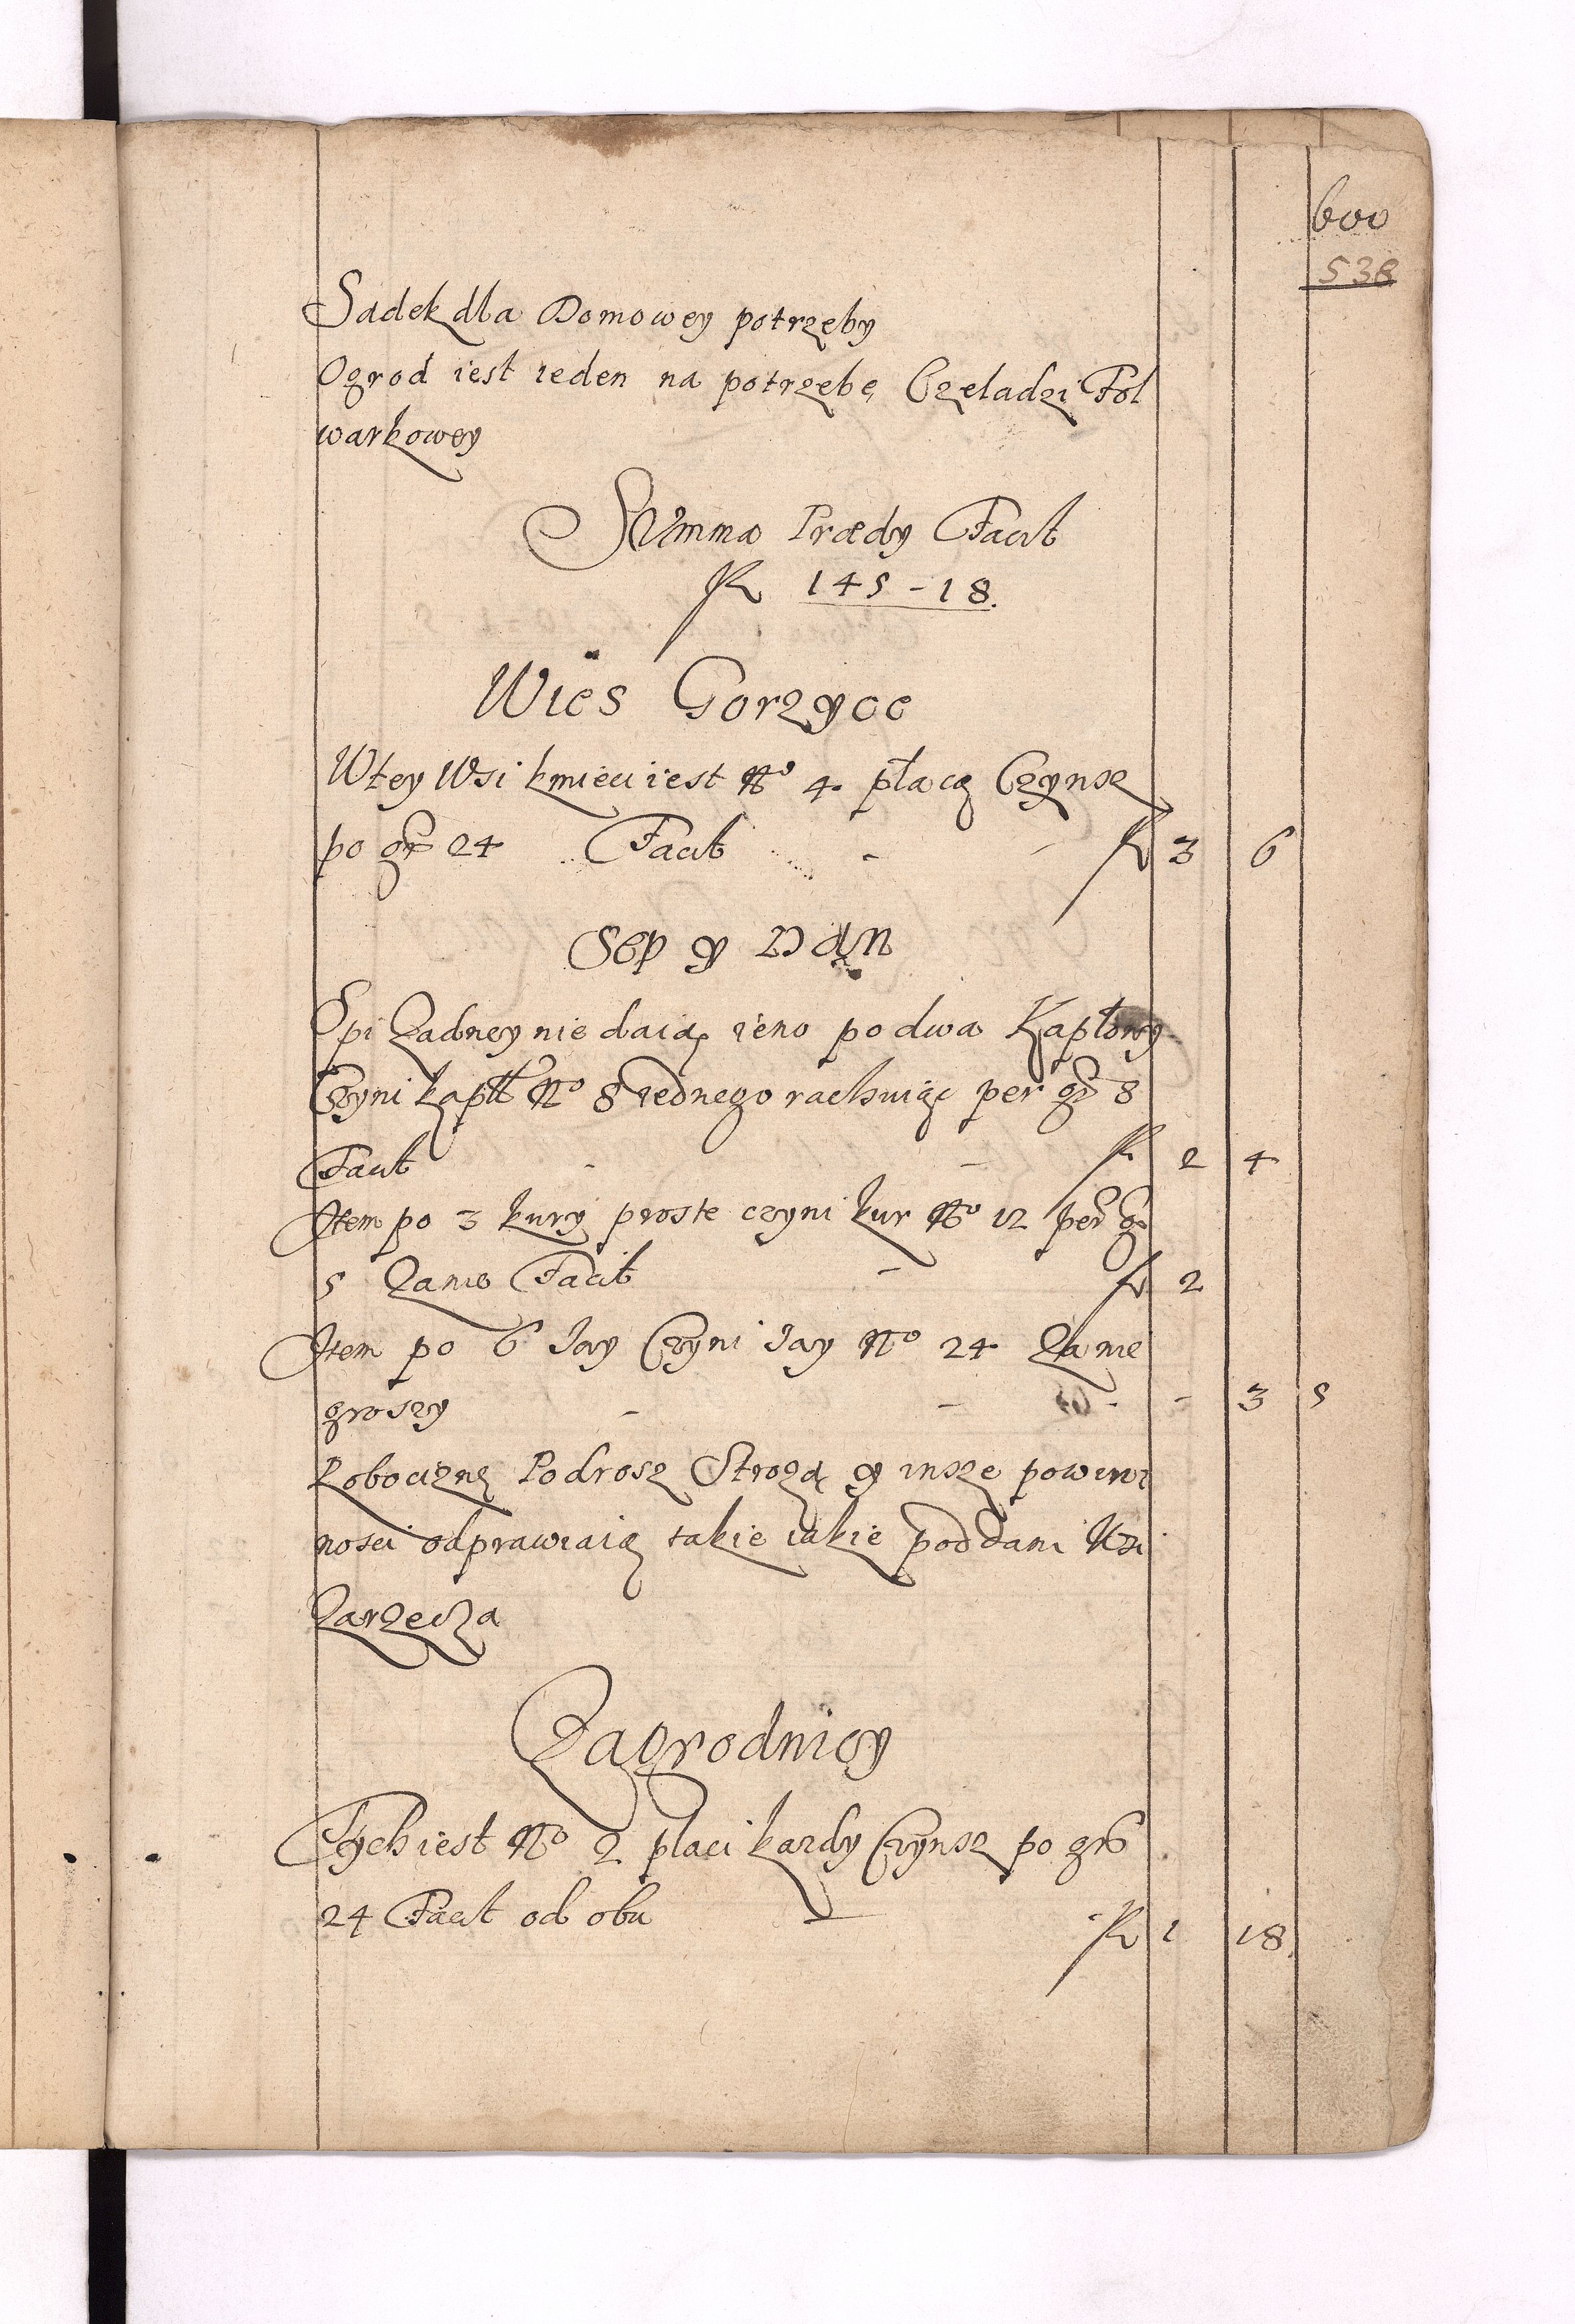 600
538
Sadek dla Domowey potrzeby
Ogrod iest ieden na potrzebę Czeladzi Fol
warkowey
Summa Prædy Facit
fl 145 - 18.
Wies Gorzyce
W tey Wsi kmieci iest No 4. płacą Czynsz
po gr 24 Facit - - fl 3 6
Sep y Dan
Spi Zadney nie daią ieno po dwa Kapłony
Czyni kapłł No 8 iednego rachuiąc per gr 8
Facit - - fl 2 4
Item po 3 kury proste czyni kur No 12 per gr
5 Zanie Facit - fl 2
Item po 6 Jay Czyni Jay No 24 Zanie
groszy - - - 3 5
Robociznę Podrosz Strozą y insze powinn
nosci odprawiaią takie iakie poddani Wsi
Zarzecza
Zagrodnicy
Tych iest No 2 płaci kazdy Czynsz po gr
24 Facit od obu - fl 1 18